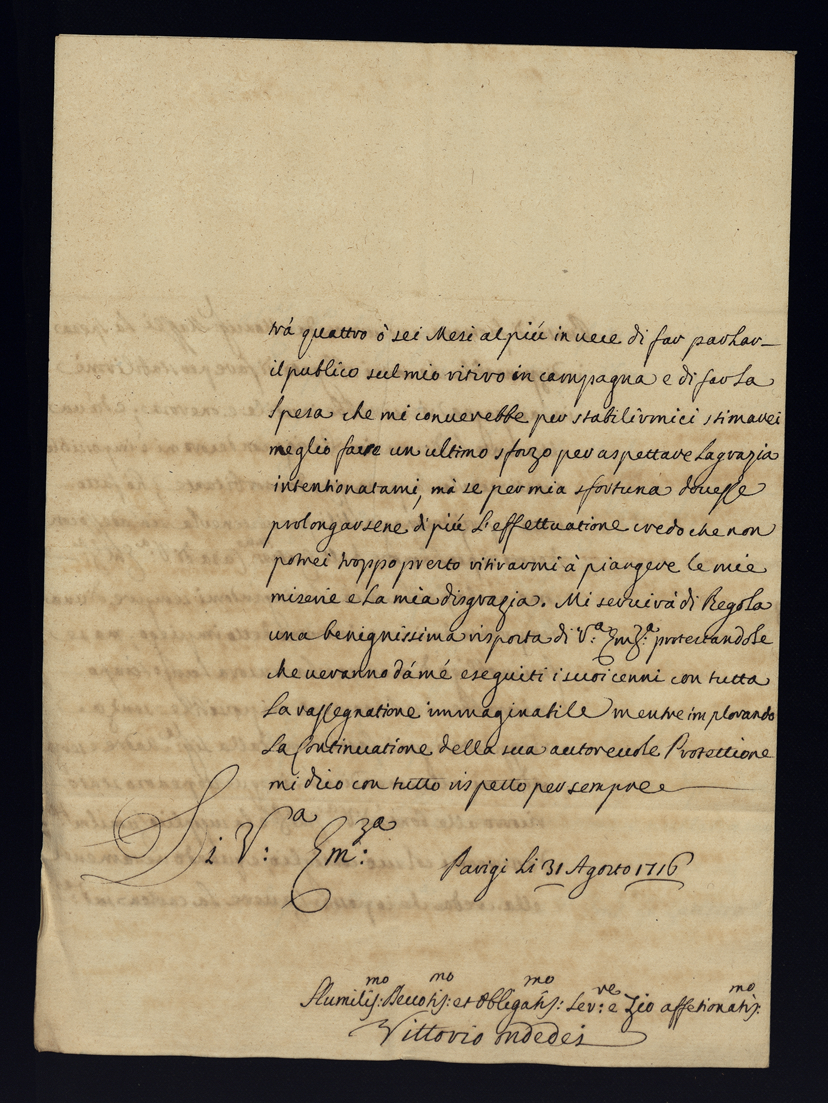 trà quattro ò sei Mesi al più in uece di far parlar
il publico sul mio ritiro in campagna e di far La
spesa che mi conuerebbe per stabilirmici stimarei
meglio fare un ultimo sforzo per aspettare La grazia
intentionatami, mà se per mia sfortuna douesse
prolongarsene di più L'effettuatione credo che non
potrei troppo presto ritirarmi à piangere le mie
miserie e La mia disgrazia. Mi seruirà di Regola
una benignissima risposta di V.ª Em.zª protestandole
che ueranno dà mé eseguiti i suoi cenni con tutta
La rassegnatione immaginabile mentre implorando
La Continuatione della sua autoreuole Protettione
mi dico con tutto rispetto per sempre
Di V.ª Em.zª
Parigi Li 31 Agosto 1716
Humiliss:mo Deuotiss:mo et Obligatiss:mo Ser:re e Zio affetionatiss:mo
Vittorio